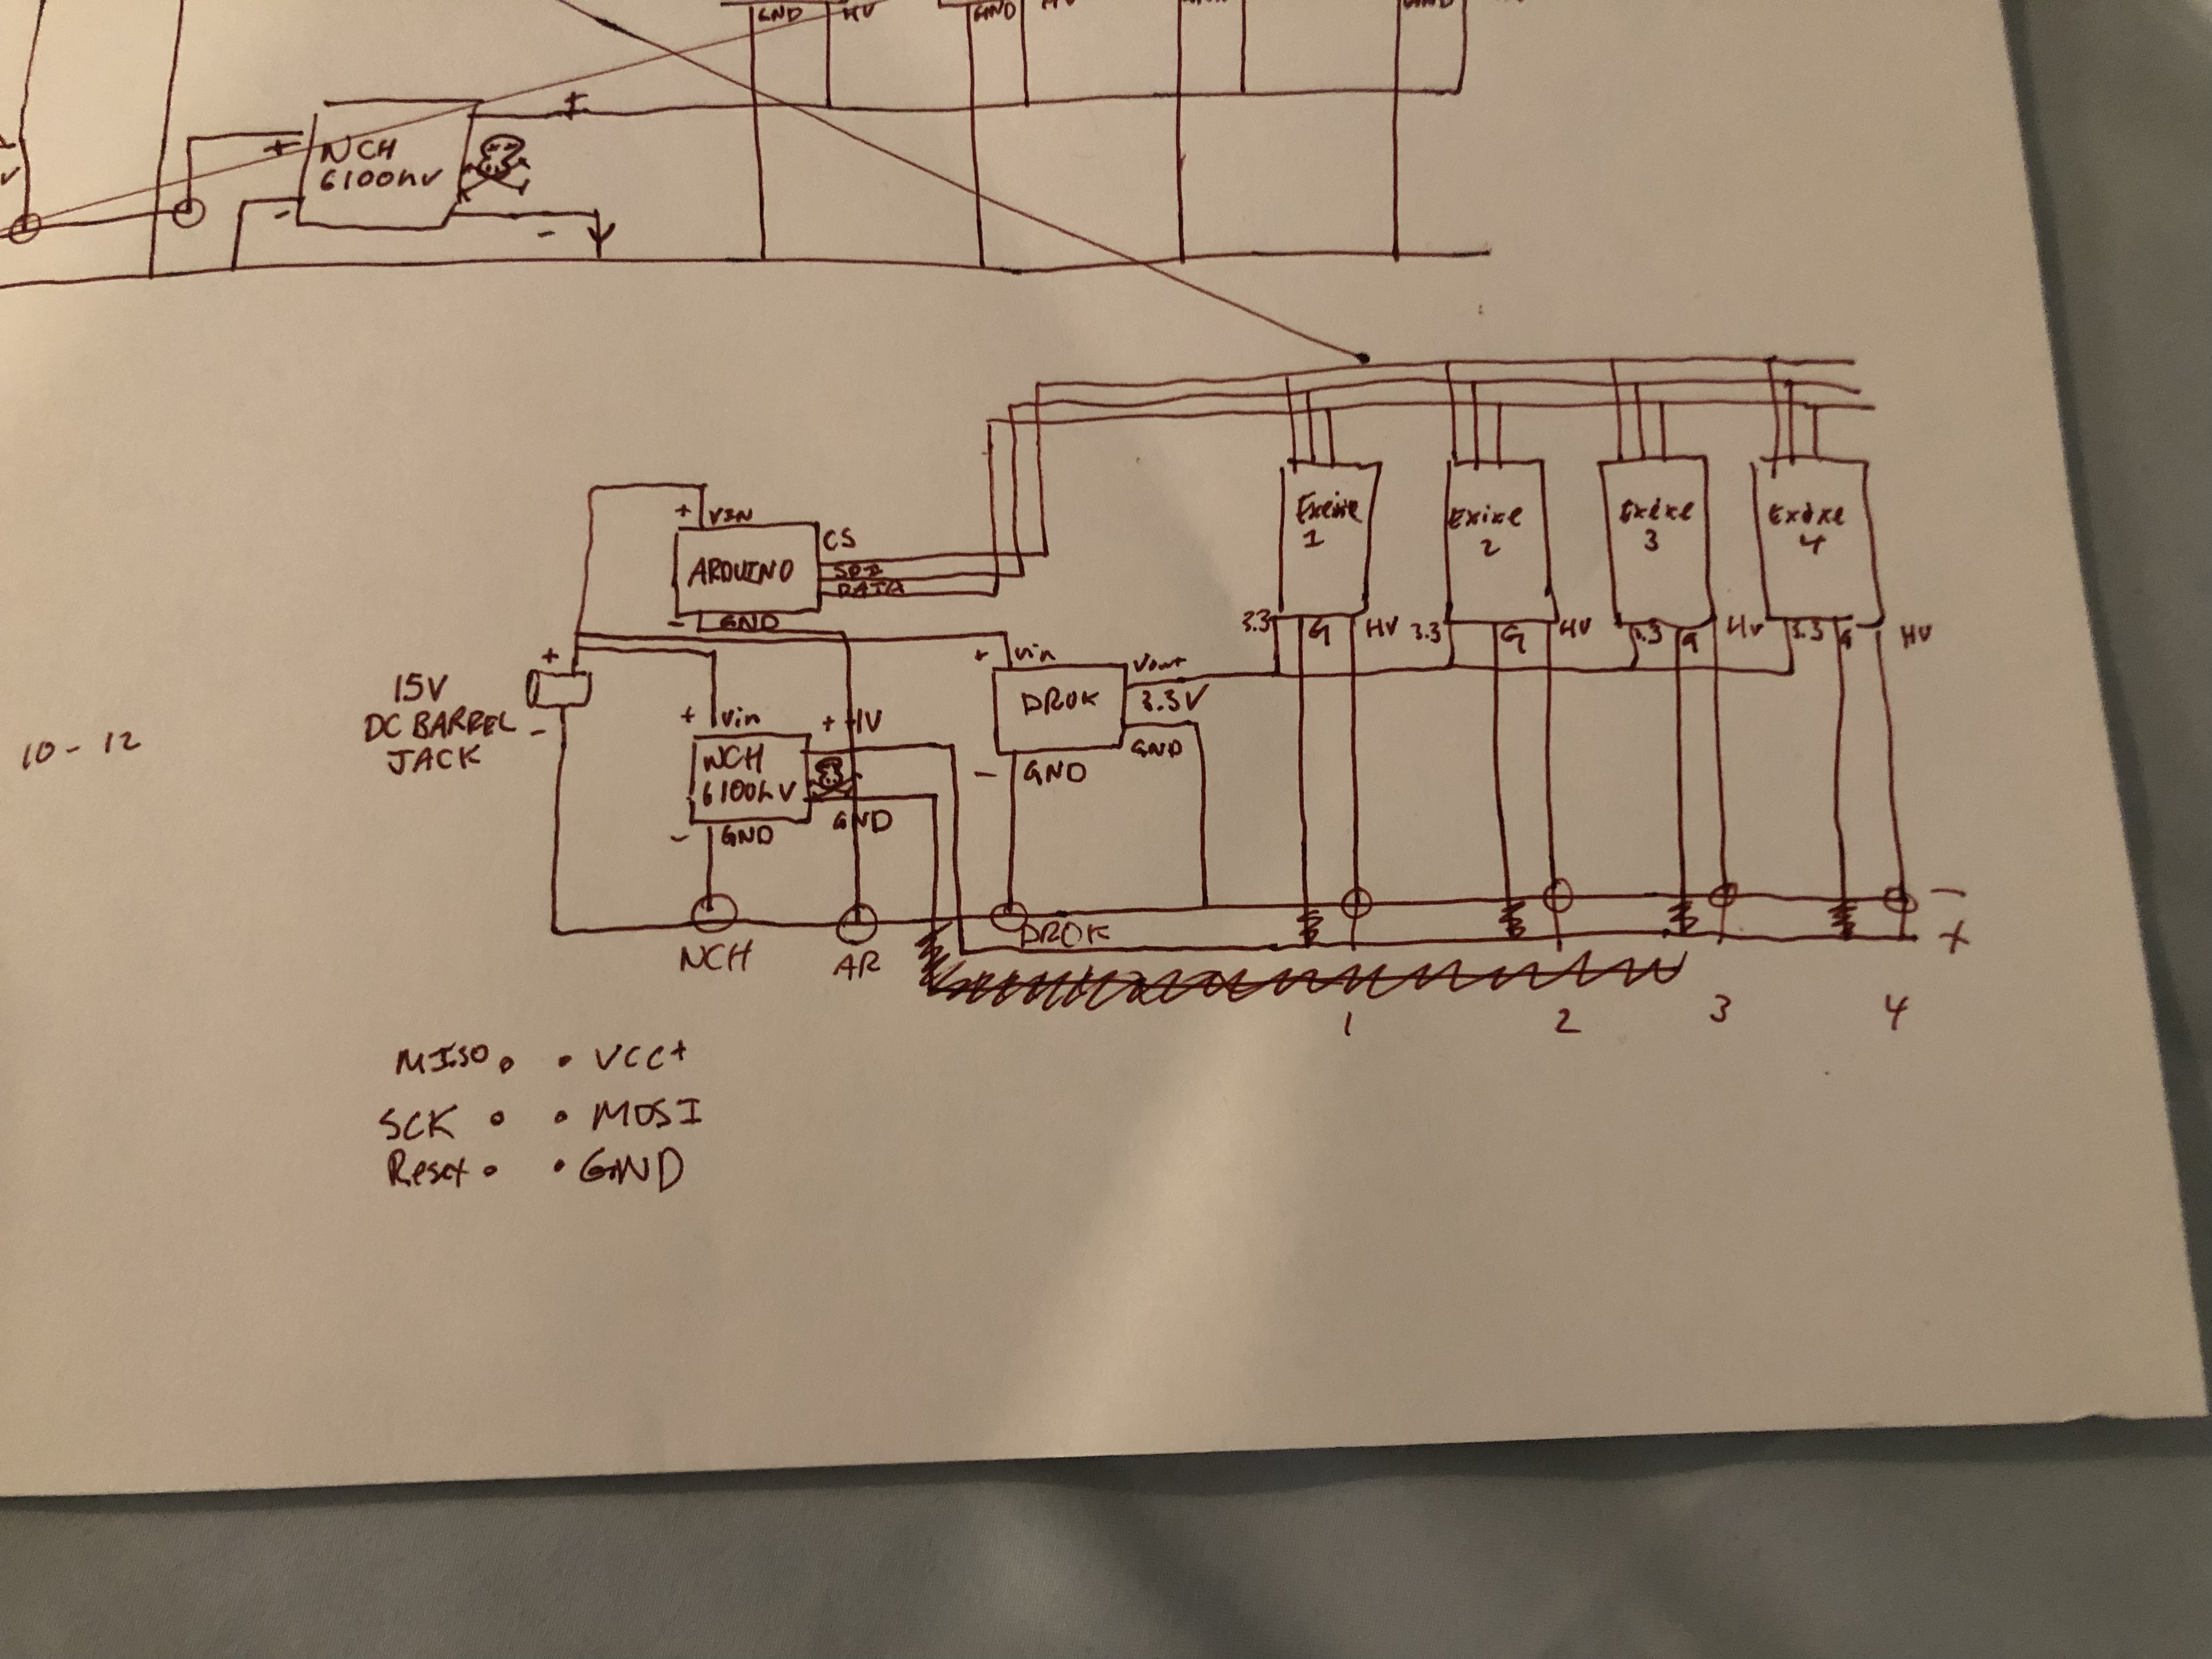 GND HV GND HV GND
+ +
NCH
6100HV
- -
+ VIN
ARDUINO
CS
SPI
DATA
- GND
Exixe
1
Exixe
2
Exixe
3
Exixe
4
3.3 G HV 3.3 G HV 3.3 G HV 3.3 G HV
+
15V
DC BARREL
JACK
-
10-12
+ Vin
+ HV
NCH
6100HV
GND
- GND
+ Vin
DROK
Vout
3.3V
GND
- GND
-
+
NCH
AR
DROK
1 2 3 4
MISO • • VCC+
SCK • • MOSI
Reset • • GND